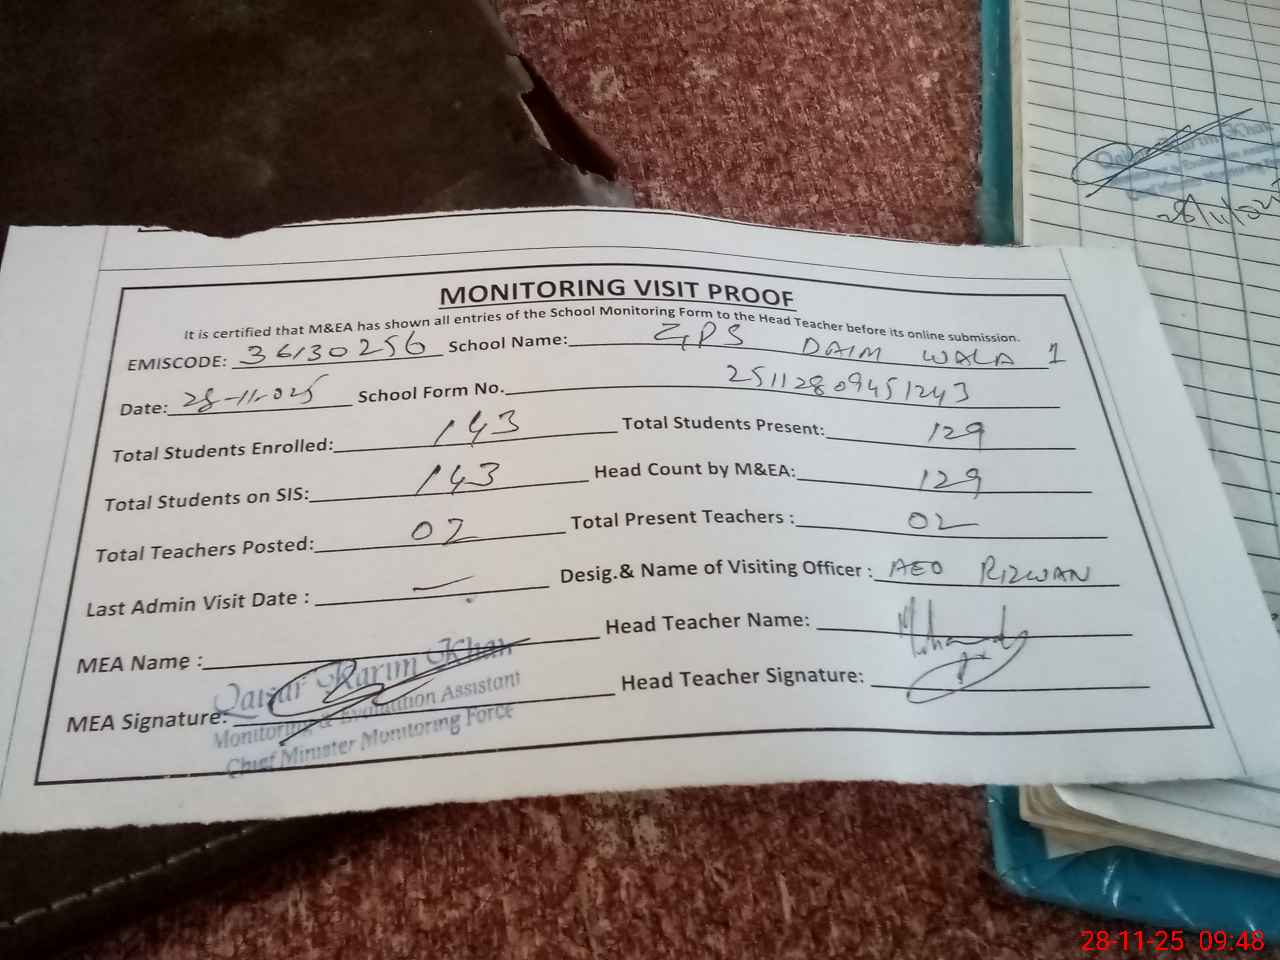 MONITORING VISIT PROOF
It is certified that M&EA has shown all entries of the School Monitoring Form to the Head Teacher before its online submission.
EMISCODE: 36130256 School Name: GPS DAIM WALA 1
Date: 28-11-025 School Form No. 25112809451243
Total Students Enrolled: 143 Total Students Present: 129
Total Students on SIS: 143 Head Count by M&EA: 129
Total Teachers Posted: 02 Total Present Teachers : 02
Last Admin Visit Date : — Desig.& Name of Visiting Officer : AEO RIZWAN
MEA Name : Head Teacher Name:
MEA Signature: Head Teacher Signature:
Qaisar Karim Khan
Monitoring & Evaluation Assistant
Chief Minister Monitoring Force
Karim Khan
28-11-25 09:48